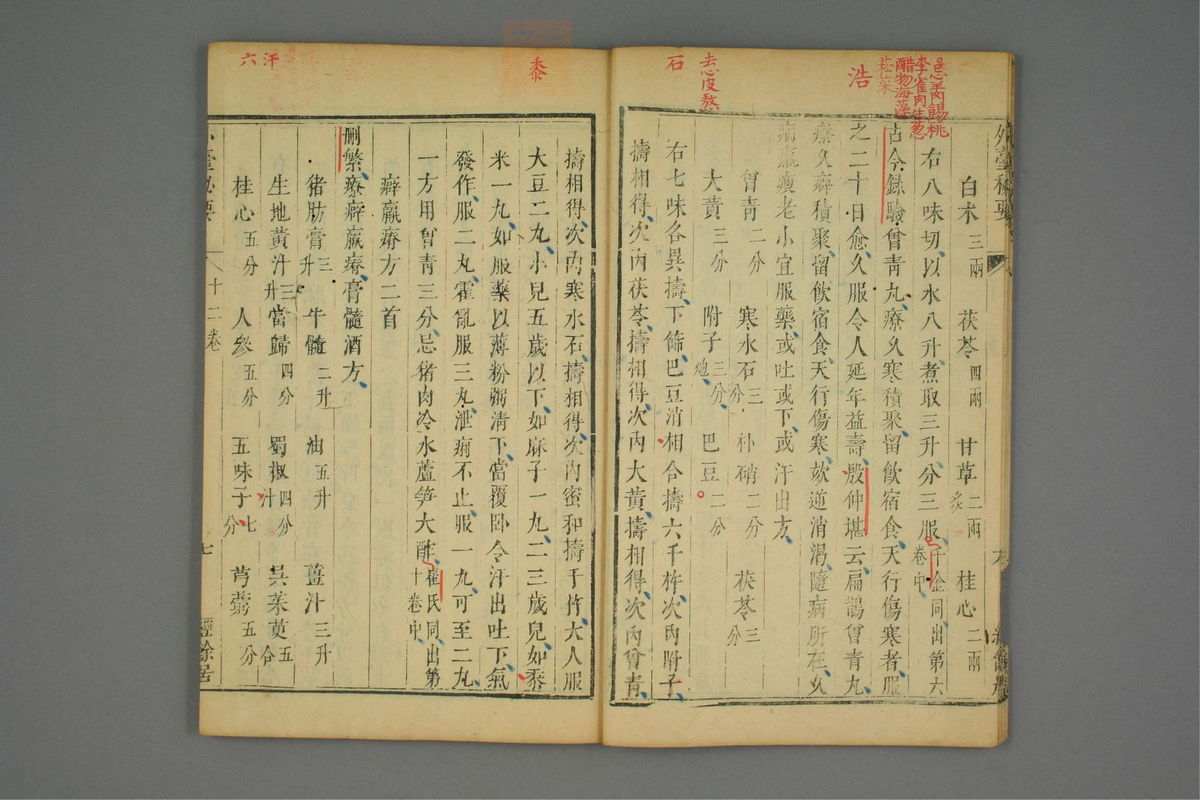 忌羊肉餳桃
李雀肉生葱
醋物海藻
菘菜
浩
去心皮熬
石
白朮三兩 茯苓四兩 甘草二兩炙 桂心二兩
右八味切以水八升煮取三升分三服千金同出第六卷中
古今錄驗曾青丸療久寒積聚留飲宿食天行傷寒者服
之二十日愈久服令人延年益壽殷仲堪云扁鵲曾青丸
療久癖積聚留飲宿食天行傷寒欬逆消渴隨病所在久
病羸瘦老小宜服藥或吐或下或汗出方
曾青二分 寒水石三分 朴硝二分 茯苓三分
大黃三分 附子三分炮 巴豆二分
右七味各異擣下篩巴豆消相合擣六千杵次內附子
擣相得次內茯苓擣相得次內大黃擣相得次內曾青
黍
汗
六
擣相得次內寒水石擣相得次內蜜和擣千杵大人服
大豆二丸小兒五歲以下如麻子一丸二三歲兒如黍
米一丸如服藥以薄粉粥清下當覆臥令汗出吐下氣
發作服二丸霍亂服三丸泄痢不止服一丸可至二丸
一方用曾青三分忌猪肉冷水蘆笋大酢崔氏同出第十卷中
癖羸瘠方二首
刪繁療癖羸瘠膏髓酒方
猪肪膏三升 牛髓二升 油五升 薑汁三升
生地黃汁三升 當歸四分 蜀椒四分汁 吳茱萸五合
桂心五分 人參五分 五味子七分 芎藭五分
外臺秘要
十二卷
七
經餘居